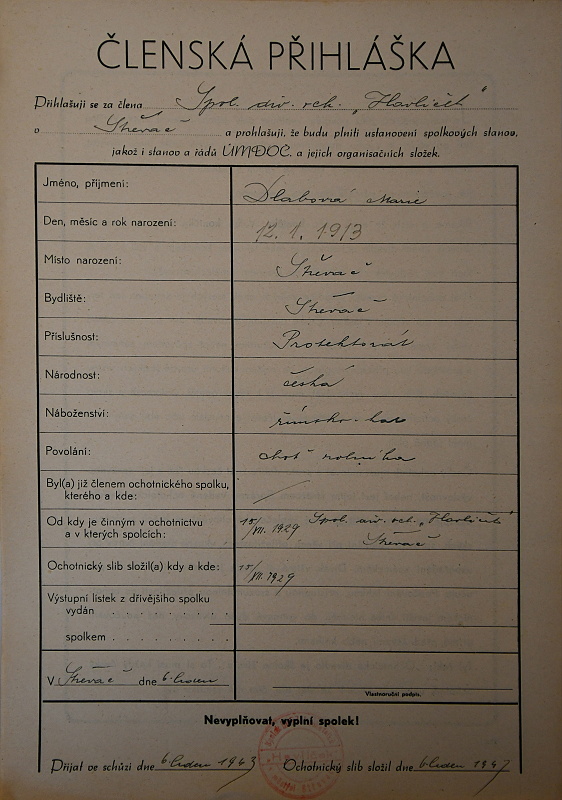 ČLENSKÁ PŘIHLÁŠKA
Přihlašuji se za člena Spol. div. och. „Havlíček"
v Střevač a prohlašuji, že budu plniti ustanovení spolkových stanov,
jakož i stanov a řádů ÚMDOČ. a jejich organisačních složek.
Jméno, příjmení: Dlabová Marie
Den, měsíc a rok narození: 12. 1. 1913
Místo narození: Střevač
Bydliště: Střevač
Příslušnost: Protektorát
Národnost: česká
Náboženství: římsko-kat
Povolání: choť rolníka
Byl(a) již členem ochotnického spolku,
kterého a kde: /
Od kdy je činným v ochotnictvu 15/VII. 1929 Spol. div. och. „Havlíček"
a v kterých spolcích: Střevač
Ochotnický slib složil(a) kdy a kde: 15/VII. 1929
Výstupní lístek z dřívějšího spolku
vydán . . . . . . . . .
spolkem . . . . . . . . .
V Střevač dne 6. leden
Vlastnoruční podpis.
Nevyplňovat, vyplní spolek!
Přijat ve schůzi dne 6 leden 1943 Ochotnický slib složil dne 6 leden 1947